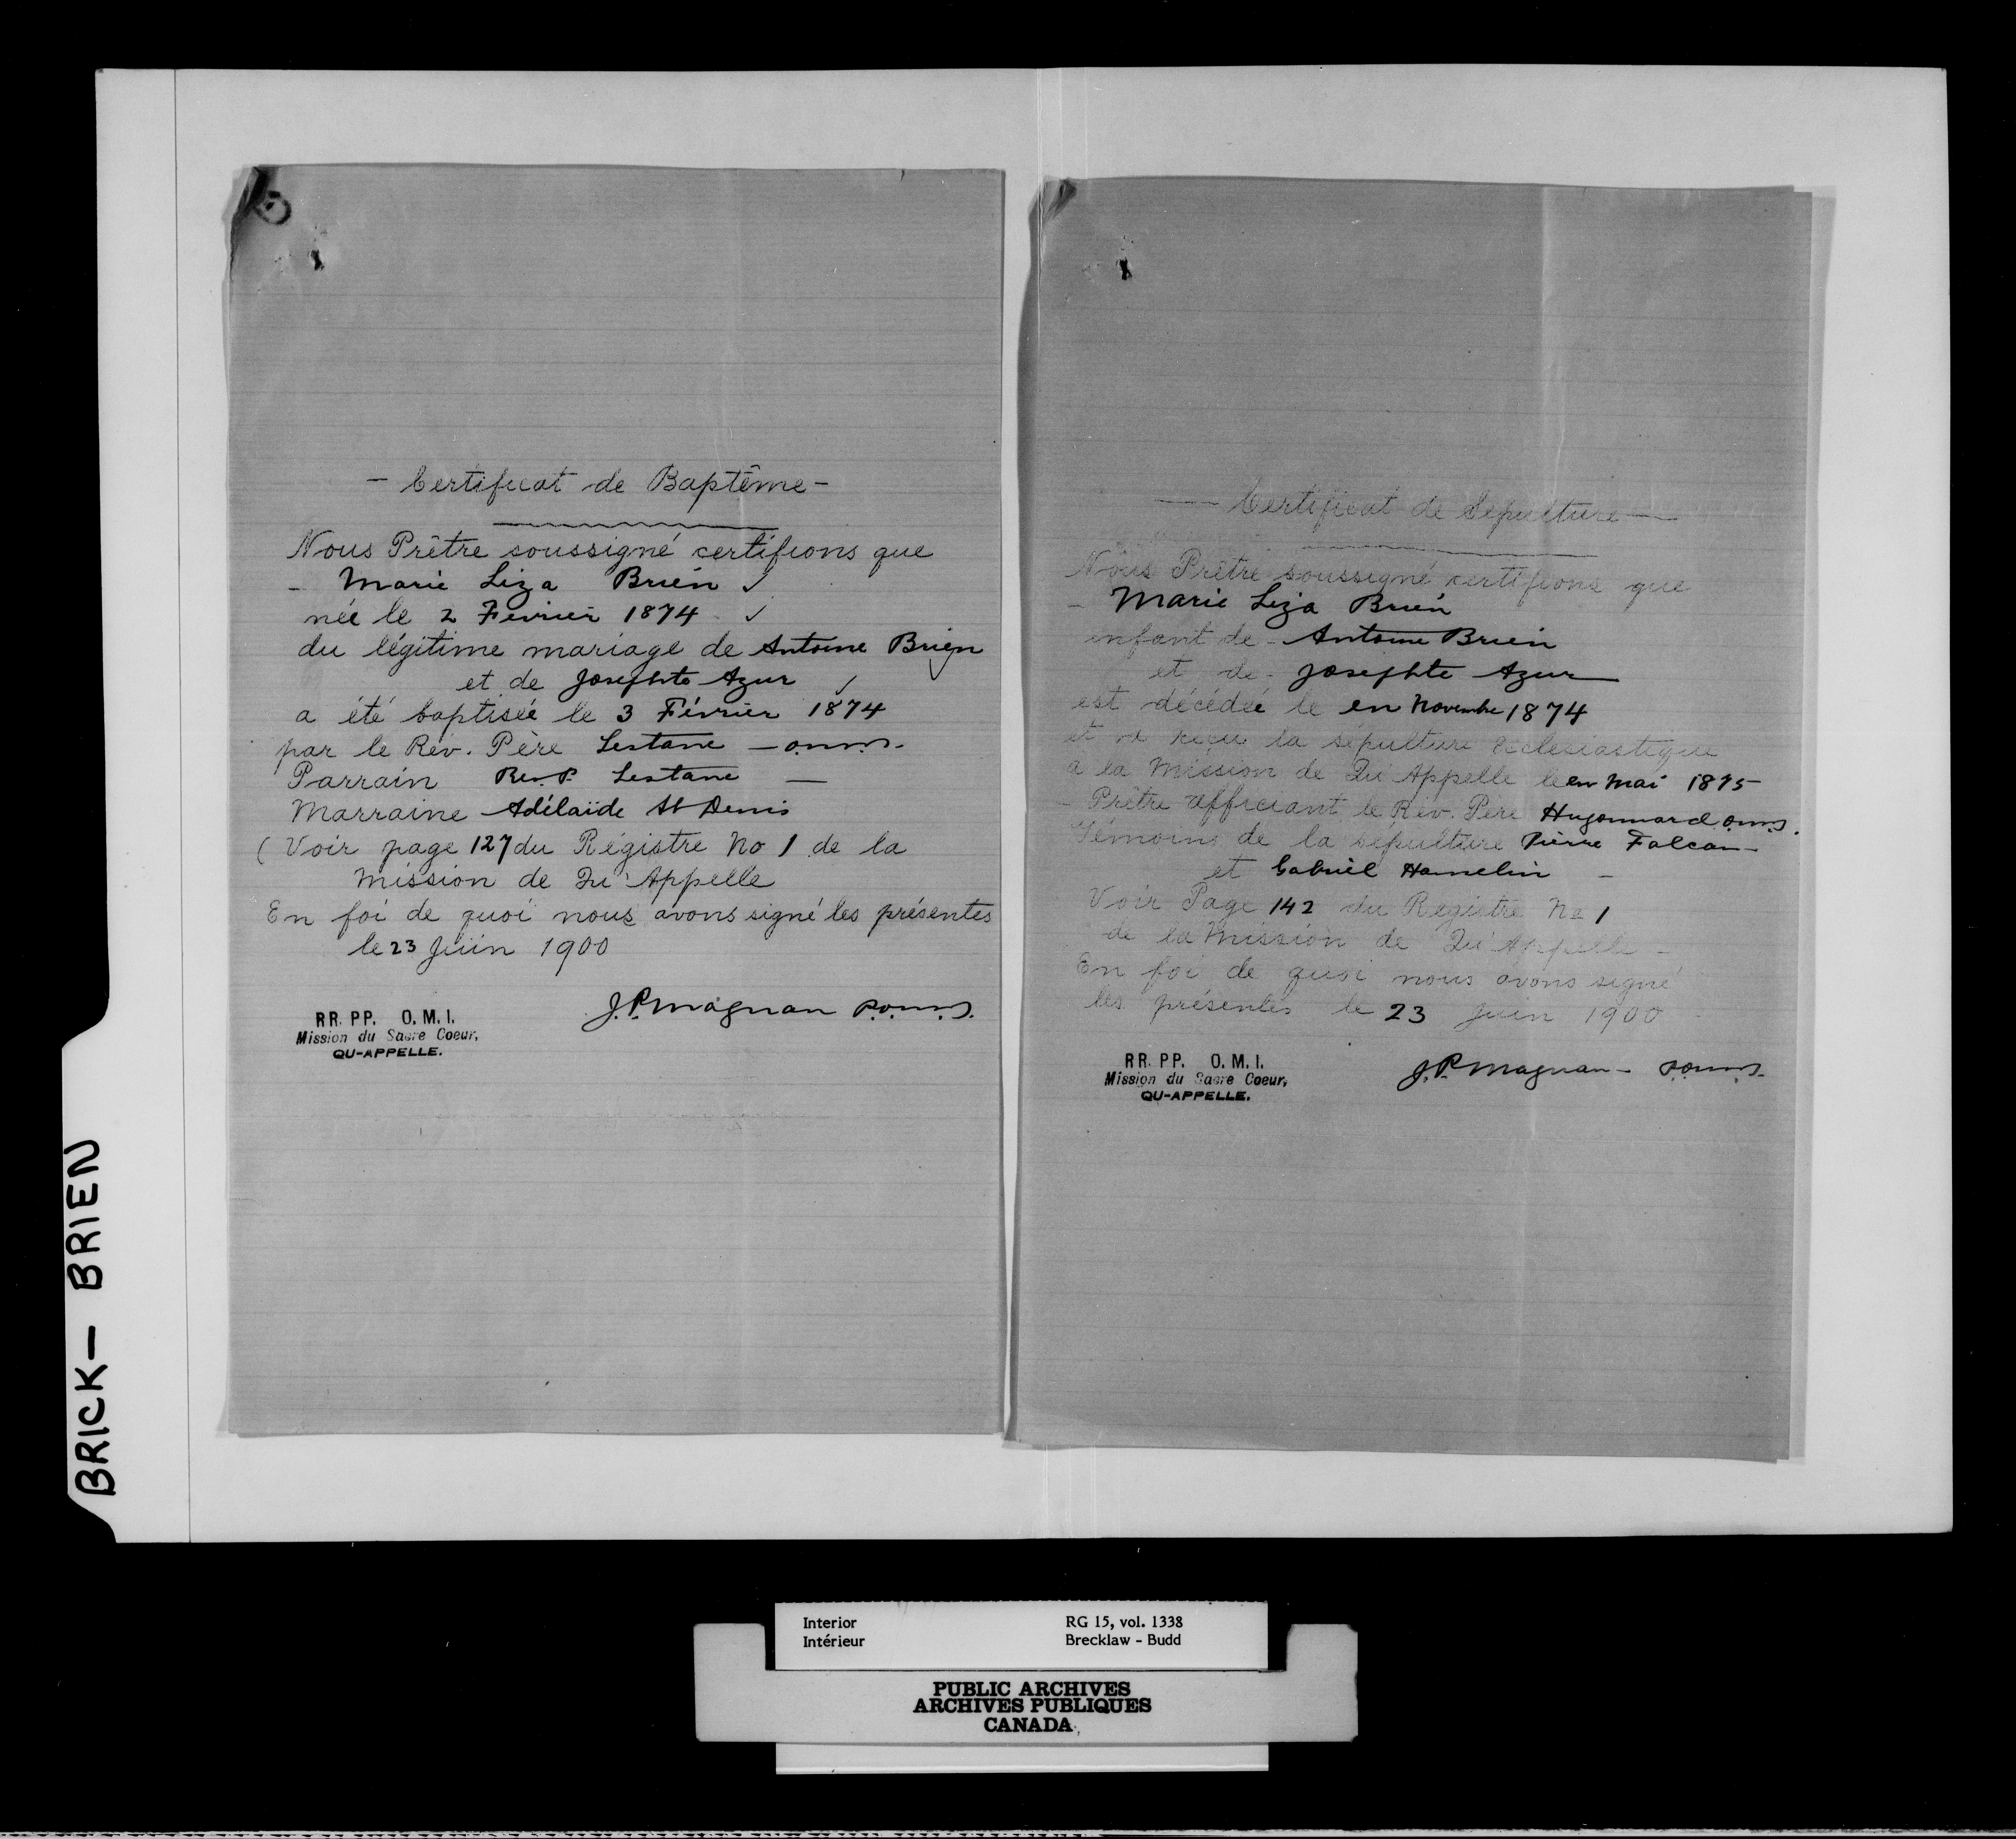 - Certificat de Baptême -
Nous Prêtre soussigné certifions que
- Marie Liza Brien ✓
née le 2 Fevrier 1874 ✓
du légitime mariage de Antoine Brien
et de Josephte Azur ✓
a été baptisée le 3 Février 1874
par le Rév. Père Lestanc - o.m.i.
Parrain Rev. P. Lestanc —
Marraine Adélaïde St Denis
( Voir page 127 du Régistre No 1 de la
Mission de Qu'Appelle
En foi de quoi nous avons signé les présentes
le 23 Juin 1900
J.P. Magnan P.o.m.i.
RR. PP. O. M. I.
Mission du Sacre Coeur,
QU-APPELLE.
— Certificat de Sépulture —
Nous Prêtre soussigné certifions que
- Marie Liza Brien
enfant de - Antoine Brien
et de - Josephte Azur
est décédée le en Novembre 1874
et a reçu la sépulture ecclésiastique
a la Mission de Qu'Appelle le en Mai 1875
- Prêtre officiant le Rév. Père Hugonnard o.m.i.
Témoins de la sépulture Pierre Falcon -
et Gabriel Hamelin -
Voir Page 142 du Registre No 1
de la Mission de Qu'Appelle -
En foi de quoi nous avons signé
les présentes le 23 Juin 1900
J.P. Magnan - P.o.m.i.
RR. PP. O. M. I.
Mission du Sacre Coeur,
QU-APPELLE.
BRICK— BRIEN
Interior RG 15, vol. 1338
Intérieur Brecklaw - Budd
PUBLIC ARCHIVES
ARCHIVES PUBLIQUES
CANADA